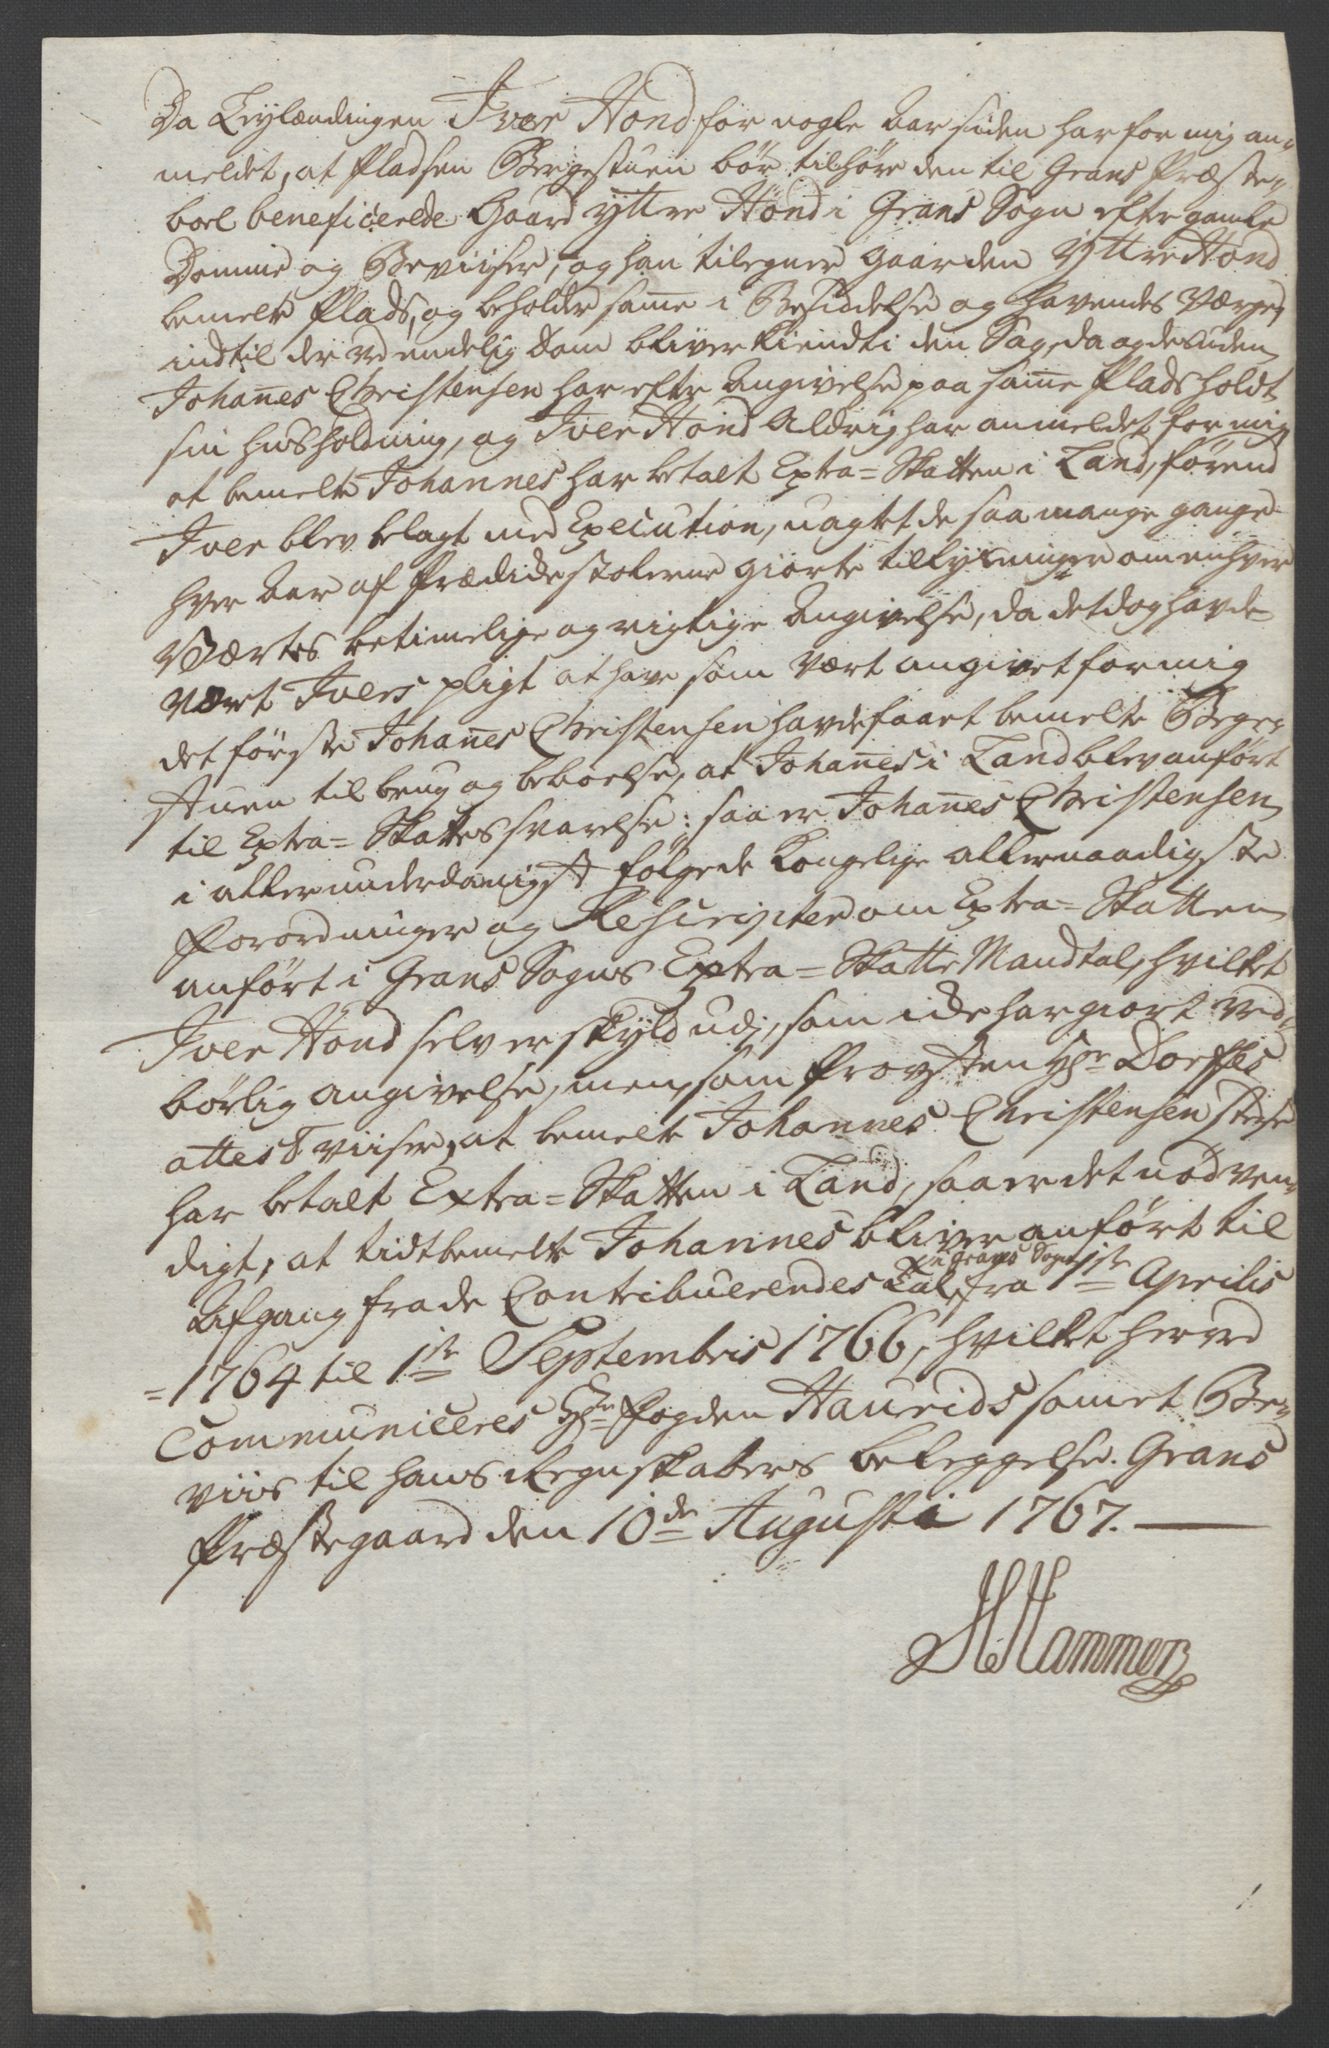 Da Leylændingen Iver Hond for nogle Aar siden har for mig an-
meldet, at Pladsen Bergestuen bör tilhöre den til Grans Præste-
boel beneficerede Gaard yttre Hönd i Grans Sogn efter gamle
Domme og Beviiser, og han tilegner Gaarden Yttre Hönd
bemelte Plads, og beholder same i Besiddelse og havendes Værge,
indtil der ved endelig Dom bliver kiendt i den Sag, da og desuden
Johañes Christensen har efter Angivelse paa same Plads holdt
sin huusholdning, og Iver Hönd Aldrig har anmeldet for mig
at bemelte Johannes har betalt Extra=Skatten i Land, förend
Iver blev belagt med Execution, uagtet de saa mange gange
hver Aar af Prædickestolerne giorte tillysninger om enhver
Værtes betimelige og rigtige Angivelse, da det dog havde
været Ivers pligt at have som Vært angivet for mig
det förste Johañes Christensen havde faaet bemelte Berge-
stuen til brug og beboelse, at Johañes i Land blev anfört
til Extra=Skattes svarelse: saa er Johañes Christensen
i allerunderdanigst fölgede Kongelige allernaadigste
Forordninger og Rescripter om Extra=Skatten
anfört i Grans Sogns Extra=Skatte Mandtal, hvilket
Iver Hönd selv er skyld udj, som icke har giort ved-
börlig angivelse, men som Provsten Hr Dorphs
attest viiser, at bemelte Johannes Christensen
har betalt Extra=Skatten i Land, saa er det nödven-
digt, at tidtbemelte Johannes bliver anfört til
Afgang fra de Contribuerendes Tal i Grans Sogn fra 1ste Aprilis
1764 til 1ste Septembris 1766, hvilket herved
Communiceres Hr Fogden Haurids samt Be-
viis til hans Regnskabers belæggelse. Grans
Præstegaard den 10de Augusti 1767.
H Hammer